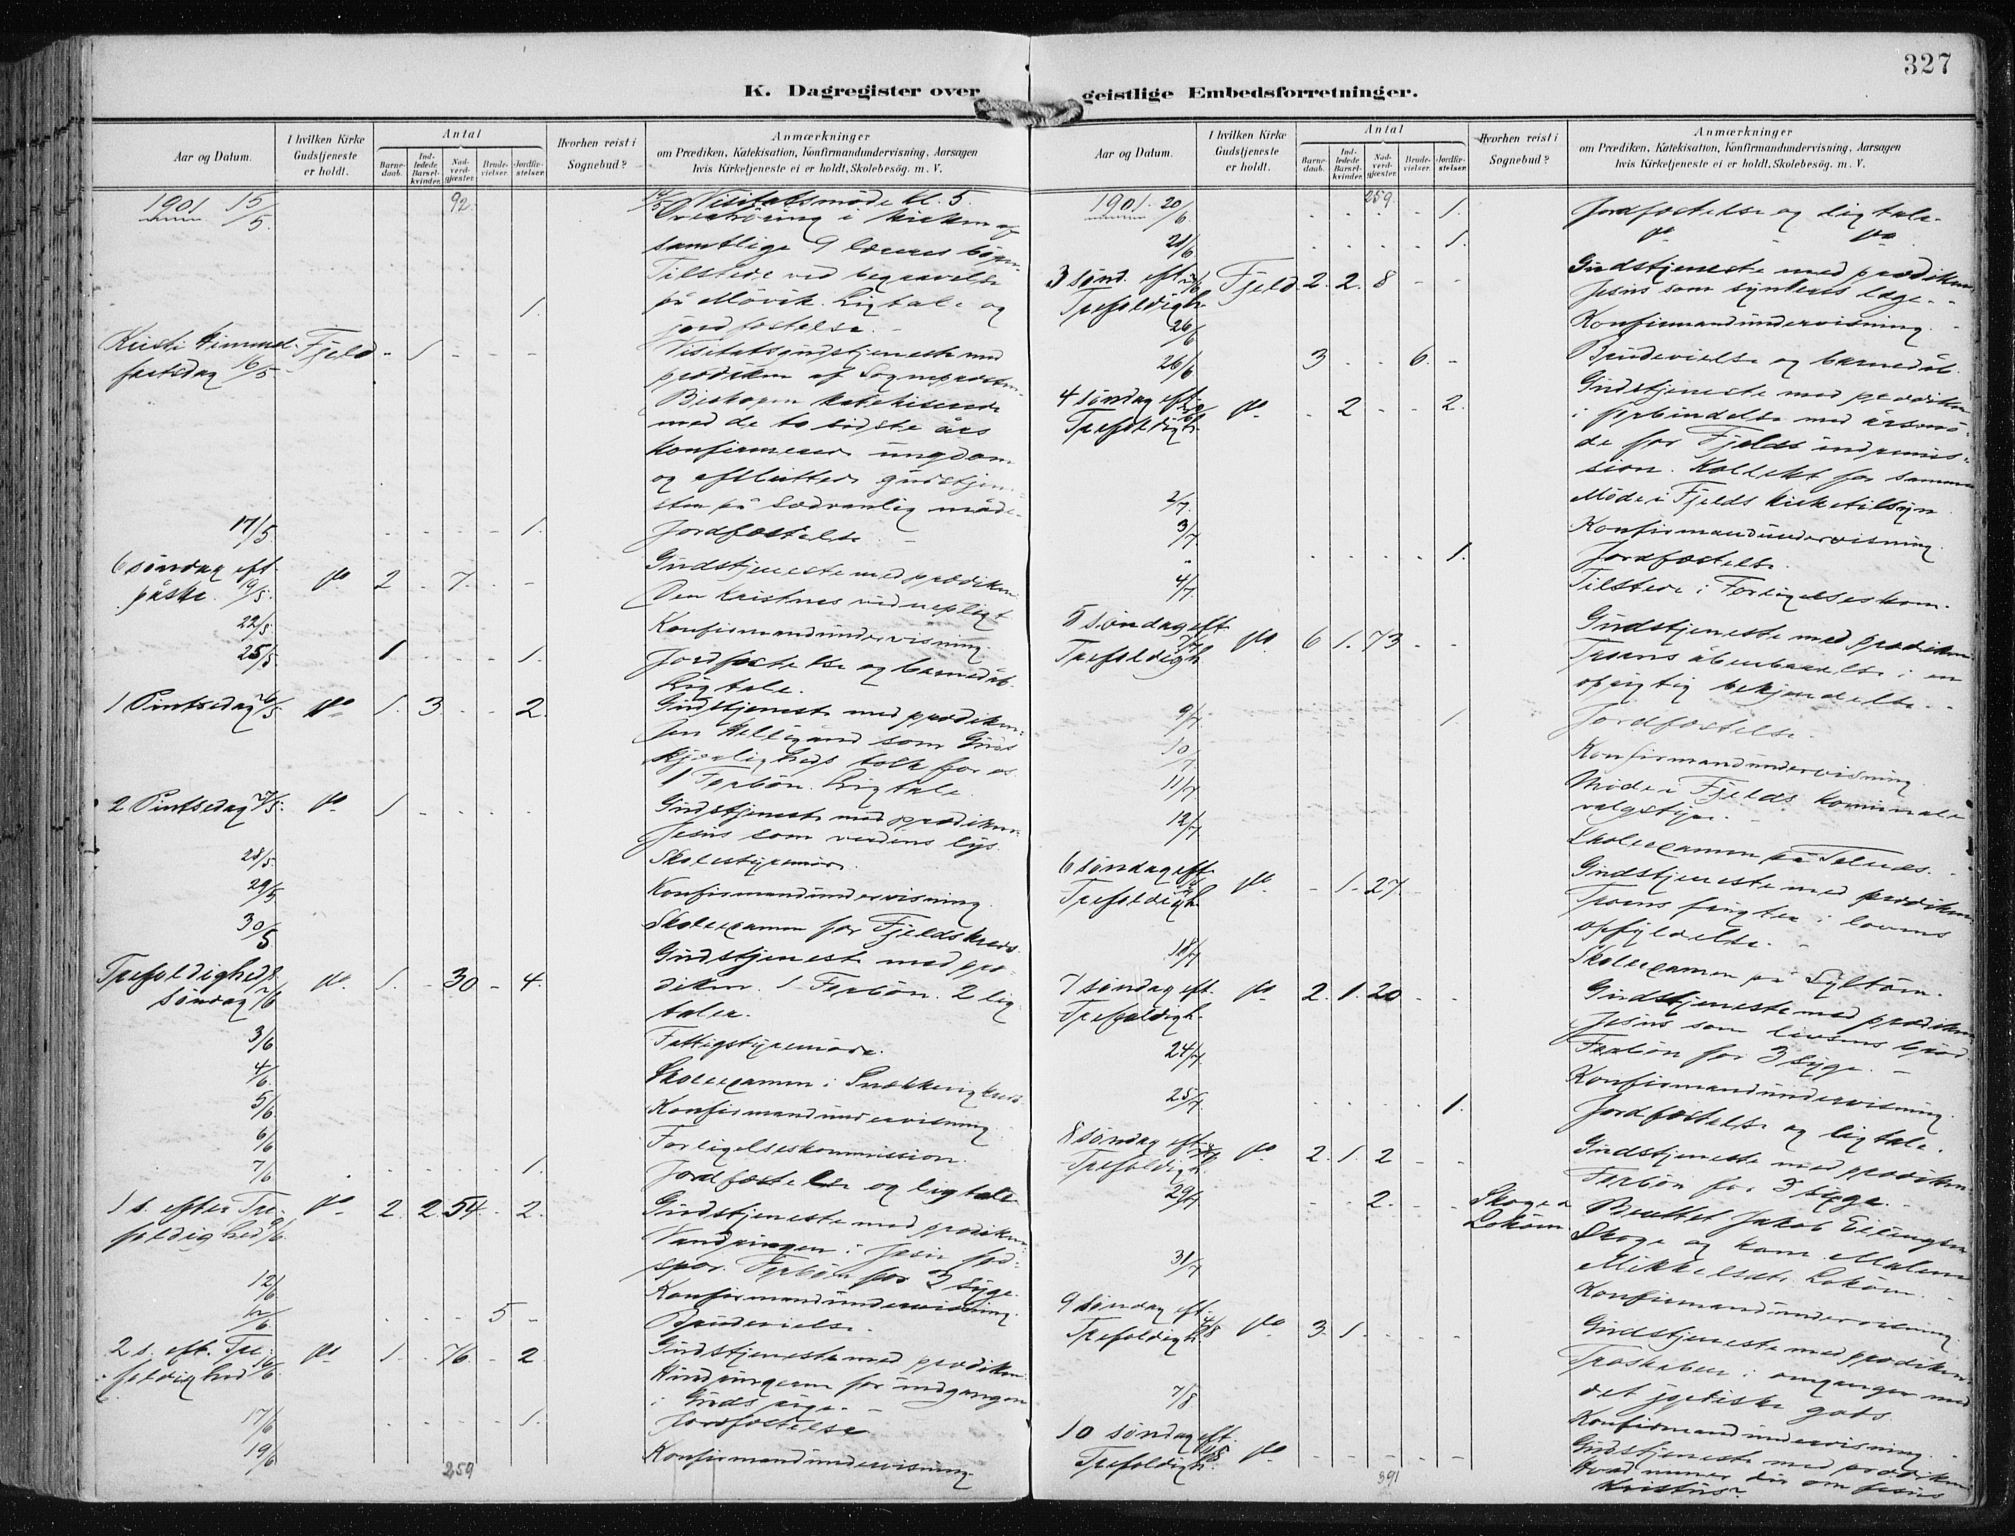 327
K. Dagregister over geistlige Embedsforretninger.
Aar og Datum.
I hvilken Kirke Gudstjeneste er holdt.
Antal
Barne-daab.
Ind-ledede Barsel-kvinder.
Nad-verd-gjæster.
Brude-vielser.
Jordfæ-stelser.
Hvorhen reist i Sognebud?
Anmærkninger
om Prædiken, Katekisation, Konfirmandundervisning, Aarsagen
hvis Kirketjeneste ei er holdt, Skolebesög. m. V.
1901 15/5 92. 14/5 Visitatsmøde kl. 5.
Overhøring i kirken af
samtlige 9 læreres børn.
Tilstede ved begravelse
1. på Møvik. Ligtale og
jordfæstelse.
Kristi Himmel- Fjeld - 1 - - - Visitatsgudstjeneste med
fartsdag 16/5 prædiken af Sognepræsten.
Biskopen katekiserede
med de to sidste års
konfirmerede ungdom
og afsluttede gudstjene-
sten på sædvanlig måde.
17/5 - - - - 1. Jordfæstelse.
6 søndag eft. do. 2 - 7. - - Gudstjeneste med prædiken.
påske 19/5. Den kristnes vidnepligt
22/5. Konfirmandundervisning.
25/5 1 - - - 1. Jordfæstelse og barnedåb.
Ligtale.
1 Pintsedag 26/5 do 1. 3 - - 2. Gudstjeneste med prædiken.
Den Helligaand som Guds
kjærligheds tolk for os.
1 Forbøn. Ligtale.
2 Pintsedag 27/5. do 1 - - - - Gudstjeneste med prædiken.
Jesus som verdens lys.
28/5 Skolestyremøde.
29/5 Konfirmandundervisning.
30/5 Skoleexamen for Fjelds kreds.
Trefoldigheds do. 1. - 30 - 4. Gudstjeneste med præ-
søndag 2/6 diken. 1 Forbøn. 2 lig
taler.
3/6 Fattigstyremøde.
4/6. Skoleexamen i Snekkevig kreds
5/6 Konfirmandundervisning.
6/6 Forligelseskommission.
7/6 - - - - 1. Jordfæstelse og ligtale
1 s. efter Tre- do 2. 2. 54 - 2. Gudstjeneste med prædiken.
foldighed 9/6 Vandringen i Jesu fod-
spor. Forbøn for 3 syge.
12/6 Konfirmandundervisning.
- - - 5 - Brudevielse.
2 s. eft. Tre- do 1. - 76 - 2. Gudstjeneste med prædiken.
foldighed 16/6. Hindringerne for indgangen
i Guds rige.
17/6 - - - - 1. Jordfæstelse
19/6 Konfirmandundervisning.
259
Aar og Datum.
I hvilken Kirke Gudstjeneste er holdt.
Antal
Barne-daab.
Ind-ledede Barsel-kvinder.
Nad-verd-gjæster.
Brude-vielser.
Jordfæ-stelser.
Hvorhen reist i Sognebud?
Anmærkninger
om Prædiken, Katekisation, Konfirmandundervisning, Aarsagen
hvis Kirketjeneste ei er holdt, Skolebesög. m. V.
1901. 20/6 - - 259. - 1. Jordfæstelse og ligtale.
21/6 - - - - 1. do - do.
3 sønd. eft. Fjeld. 2. 2. 8 - - Gudstjeneste med prædiken
Trefoldigh. Jesus som synderes læge.
26/6 Konfirmandundervisning.
26/6 3 - - 6. - Brudevielse og barnedåb.
4 søndag eft. do. - 2 - - 2. Gudstjeneste med prædiken
Trefoldigh. i forbindelse med årsmø-
de for Fjelds indremis-
sion. Kollekt for samme
2/7. Møde i Fjelds kirketilsyn
3/7. Konfirmandundervisning.
" - - - - 1. Jordfæstelse.
4/7. Tilstede i Forligelseskom.
5 søndag eft. do. 6 1. 73 - - Gudstjeneste med prædiken.
Trefoldigh. 7/7 Troens åbenbarelse i en
oprigtig bekjendelse.
9/7. 1. Jordfæstelse.
10/7. Konfirmandundervisning.
11/7 Møde i Fjelds kommunale
valgstyre.
12/7 Skoleexamen på
6 søndag eft. do. - 1. 27 - - Gudstjeneste med prædiken
Trefoldigh. Troens frugter i lovens
opfyldelse.
18/7 Skoleexamen på
7 søndag eft. do. 2. 1. 20 - - Gudstjeneste med prædiken
Trefoldigh. Jesus som livsens brød
Forbøn for 3 syge.
24/7 Konfirmandundervisning.
25/7. - - - - 1. Jordfæstelse og ligtale.
8 søndag eft. do. 2. 1. 2 - - Gudstjeneste med prædiken.
Trefoldigh. Forbøn for 3 syge.
29/7 - - 2. - - Skoge & Lokøen Berettet Jakob
Skoge og kone Malene
Mikkelsdtr. Lokøen.
31/7 Konfirmandundervisning.
9 søndag eft. do. 3. 1. - - - Gudstjeneste med prædiken
Trefoldigh. 4/8 Troskaben i omgangen med
det jordiske gods.
7/8 Konfirmandundervisning.
10 søndag eft. do - - - - - Gudstjeneste med prædiken
Trefoldigh. 11/8. Hvad mener du om Jesus
Kristus?
391